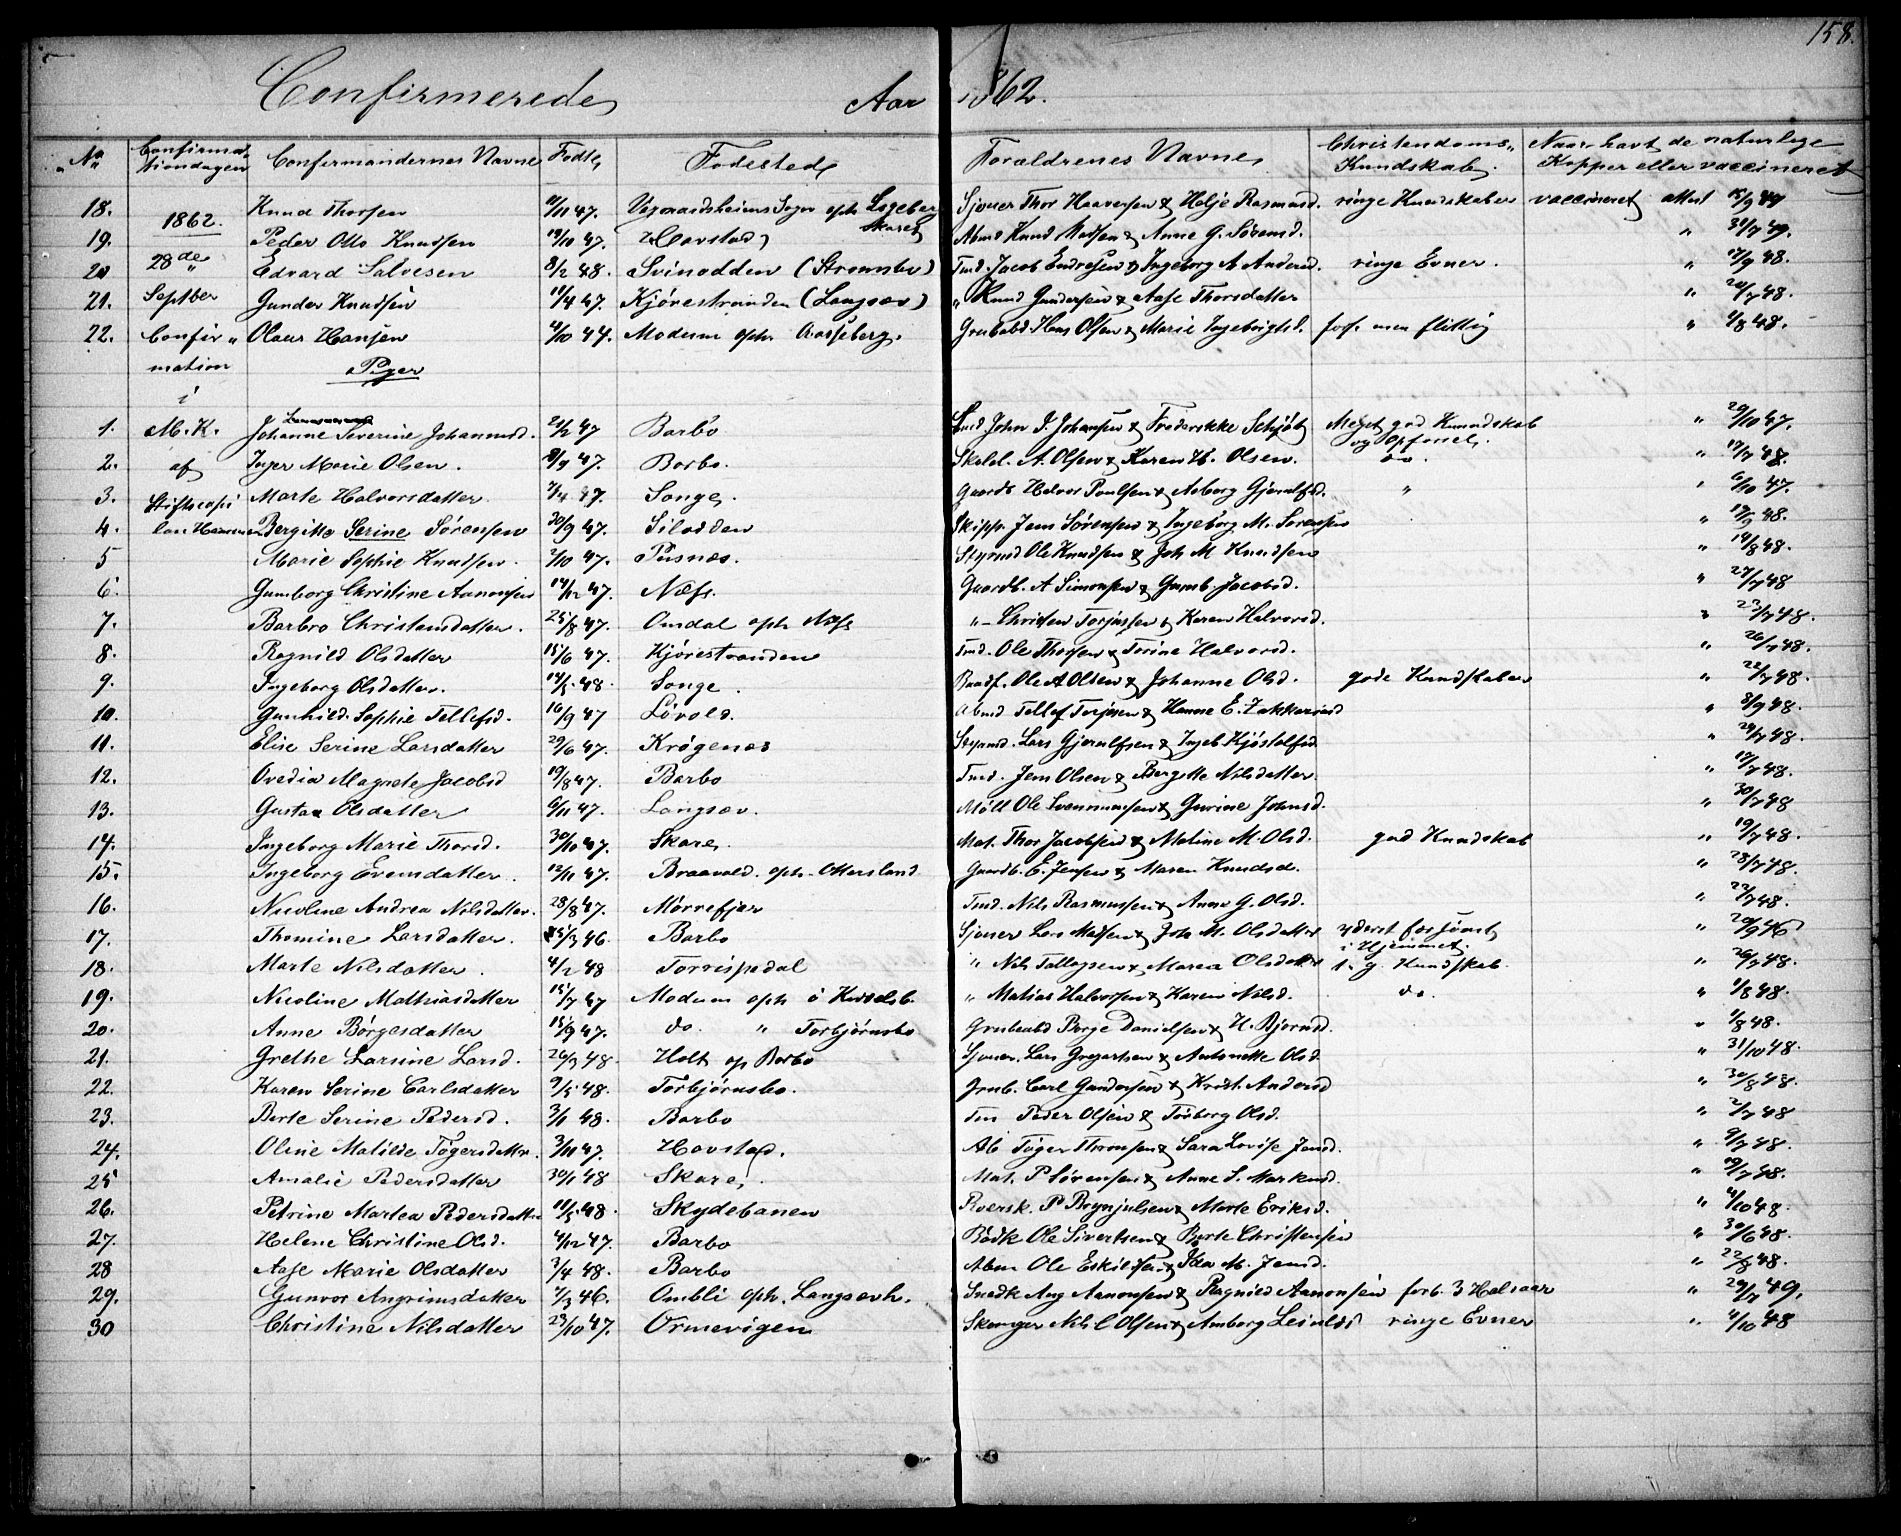 158.
Confirmerede Aar 1862.
No Confirmationdagen Confirmandernes Navne Fødte Fødested Forældrenes Navne Christendoms Kundskab Naar havt de naturlige Kopper eller vaccineret
18. 1862. Knud Thorsen 11/11 47. Vegaardsheiens Sogn oph Sjøuer Thor Haaversen & Helje Rasmusd. ringe Kundskaber vaccineret attest 15/9 49
19. Peder Otto Knudsen 19/10 47. Havstad Abmd Knud Madsen & Anne G. Sørensd. " 31/7 49.
20 28de Edvard Salvesen 8/2 48. Svinodden (Strømsbo) Tmd. Jacob Endresen & Ingeborg A Andersd. ringe Evner. " 17/9 48.
21. Septber Gunder Knudsen 19/4 47. Kjørestranden (Langsæv) " Knud Gundersen & Aase Thorsdatter " 20/7 48.
22. Confir" Olaus Hansen 4/10 47. Modum oph Aasseberg. Grubabd Hans Olsen & Marie Ingebrigtsd. fors. men flittig " 4/8 48.
mation Piger
i
1. M.K. Johanne Severine Johannesd. 21/2 47 Barbo John J. Johansen & Frederikke Schjøt Meget god Kundskab og Opførsel. " 29/10 47.
2. af Inger Marie Olsen. 8/9 47. Barbo. Skold. A. Olsen & Karen H. Olsen. do. " 17/7 48.
3. Stiftscapi Marte Halvorsdatter 7/4 47. Songe. Gaardb Halvor Poulsen & Asborg Gjerulfsd. " " 6/10 47.
4. lan Bergitte Serine Sørensen 30/9 47. Silodden Skipp. Jens Sørensen & Ingeborg M. Sørensen " 17/9 48.
5 Marie Sophie Knudsen. 2/10 47. Pusnæs. Styrmd Ole Knudsen & Joh M Knudsen " 14/8 48.
6. Gumborg Christine Aanonsen 14/12 47. Næss. Gaardb. A Simonsen & Gumb. Jacobsd. " 27/7 48
7. Barbro Christensdatter. 25/8 47. Omdal oph Næss " Christen Torjussen & Karen Halvorsd. " 23/7 48.
8. Ragnild Olsdatter 15/6 47. Kjørestranden Tmd. Ole Thorsen & Torine Halvorsd. " 26/7 48.
9. Ingeborg Olsdatter. 14/5 48. Songe. Baadf. Ole A Olsen & Johanne Olsd. gode Kundskaber " 22/7 48.
10. Gunhild Sophie Tellefsd. 16/9 47 Løvold. Abmd Tellef Terjesen & Hanne E. Zakkariasd " 8/9 48.
11. Elise Serine Larsdatter 29/6 47. Krøgenæs Styrmd. Lars Gjerulfsen & Ingeb Kjøstolfsd. " 24/7 48.
12. Ovedia Magnete Jacobsd 19/8 47. Barbo Tmd. Jens Olsen & Bergitte Nilsdatter. " 17/7 48.
13. Gustaa Olsdatter 6/11 47. Langsæv. Møll Ole Svennungsen & Gurine Johnsd. " 30/7 48
14. Ingeborg Marie Thorsd. 30/10 47. Skare. Mat. Thor Jacobsen & Maline M. Olsd. god Kundskab " 19/7 48.
15. Ingeborg Evensdatter. 12/11 47. Braavold. oph. Ottersland Gaardb. E. Jensen & Maren Knudsd. " 28/7 48.
16. Nicoline Andrea Nilsdatter. 28/8 47. Mørrefjær Tmd. Nils Rasmussen & Anne G. Olsd. " 22/7 48.
17. Thomine Larsdatter. 25/3 46. Barbo Sjøuer Lars Madsen & Joh M. Olsdatter yderst forsømt i Hjemmet. " 20/9 46
18. Marte Nilsdatter. 4/2 48 Torrispedal " Nils Tallagsen & Maren Olsdatter t. g. Kundskab. " 26/7 48.
19. Nicoline Mathiasdatter 15/7 47 Modum oph " Matias Halvorsen & Karen Nilsd. do. " 1/8 48.
20. Anne Børgesdatter 15/9 47. do. " Torbjørnsbo Grubeabd Børge Danielsen & H. Bjørnsd. " 1/8 48.
21. Grethe Larsine Larsd. 26/3 48. Holt op Barbo Sjøuer. Lars Gregertsen & Antonette Olsd. " 31/10 48.
22. Karen Serine Carlsdatter 9/5 48. Torbjørnsbo. Grub. Carl Gundersen & Krist. Andersd " 30/8 48.
23. Berte Serine Pedersd. 3/1 48. Barbo Tm. Peder Olsen & Torborg Olsd. " 2/7 48
24. Oline Matilde Tøgersdatter. 3/11 47. Havstad. Ab Tøger Thronsen & Sara Lovise Jensd. " 9/7 48.
25 Amalie Pedersdatter 30/1 48 Skare. Mat. P Sørensen & Anne S. Markusd. " 19/7 48.
26. Petrine Martea Pedersdatter 11/5 48. Skydebanen Roersk. P Brynjulsen & Marte Eriksd. " 4/10 48.
27. Helene Christine Olsd. 4/12 47. Barbo Bødk Ole Sivertsen & Berte Christensen " 30/6 48.
28 Aase Marie Olsdatter 3/4 48. Barbo Abm Ole Eskilsen & Ida M. Jensd. " 22/8 48.
29. Gunvor Angrimsdatter 7/3 46. Ombli oph. Langsævh. Snedk Ang Aanonsen & Ragnild Aanonsen forb. 3 Halvaar " 29/7 49.
30 Christine Nilsdatter 23/10 47. Ormevigen Nils C Olsen & Amborg ringe Evner " 4/10 48